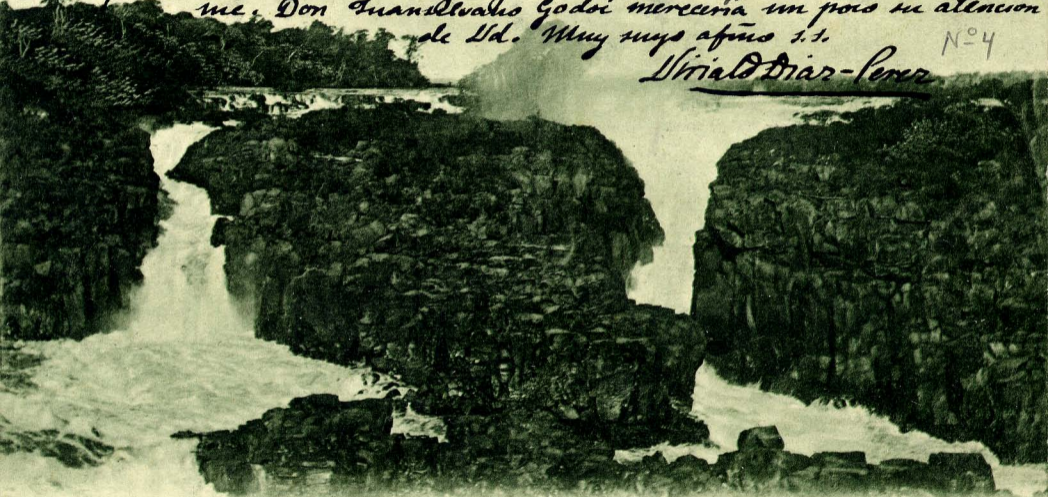 me. Don Juansilvano Godoi merecería un poco su atencion
de Ud. Muy suyo afmo s.s.
Nº 4
Viriato Diaz-Perez